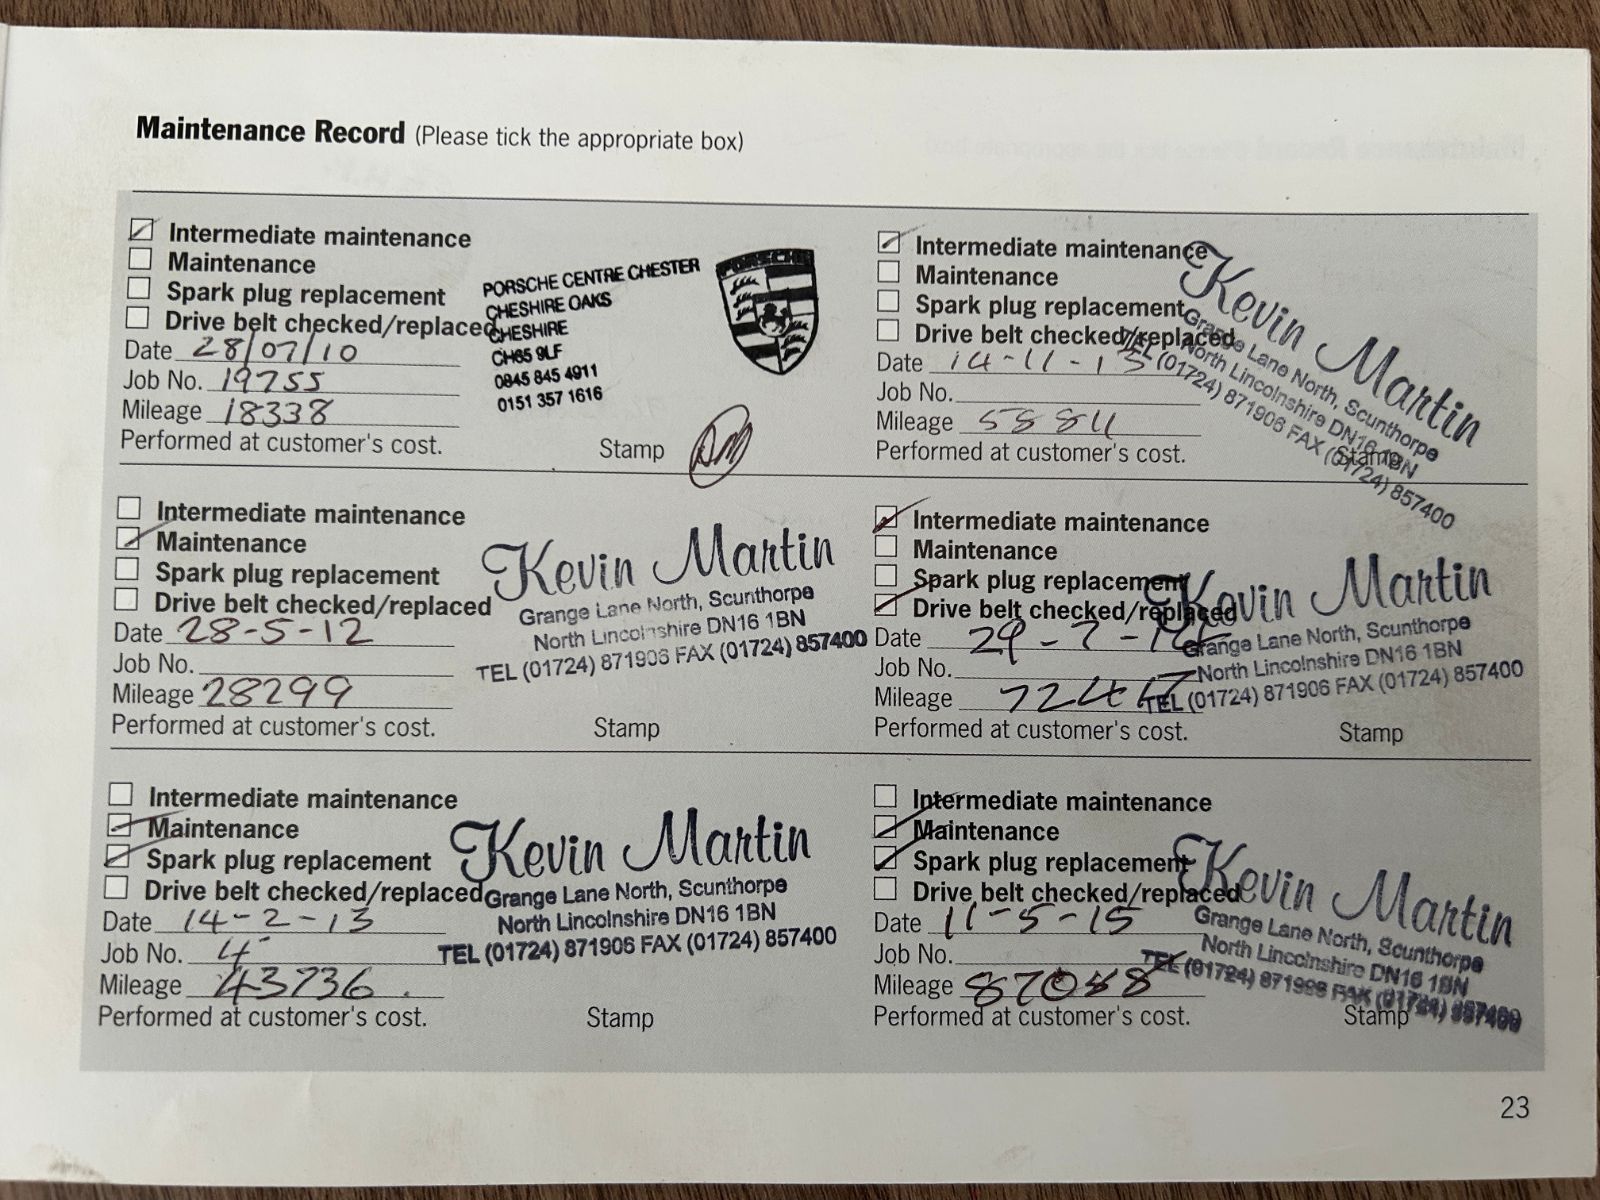 Maintenance Record (Please tick the appropriate box)
Intermediate maintenance
Maintenance
Spark plug replacement
Drive belt checked/replaced
Date 28/07/10
Job No. 19755
Mileage 18338
Performed at customer's cost.
PORSCHE CENTRE CHESTER
CHESHIRE OAKS
CHESHIRE
CH65 9LF
0845 845 4911
0151 357 1616
PORSCHE
Stamp
Intermediate maintenance
Maintenance
Spark plug replacement
Drive belt checked/replaced
Date 28-5-12
Job No.
Mileage 28299
Performed at customer's cost.
Kevin Martin
Grange Lane North, Scunthorpe
North Lincolnshire DN16 1BN
TEL (01724) 871906 FAX (01724) 857400
Stamp
Intermediate maintenance
Maintenance
Spark plug replacement
Drive belt checked/replaced
Date 14-2-13
Job No. 4
Mileage 43736
Performed at customer's cost.
Kevin Martin
Grange Lane North, Scunthorpe
North Lincolnshire DN16 1BN
TEL (01724) 871906 FAX (01724) 857400
Stamp
Intermediate maintenance
Maintenance
Spark plug replacement
Drive belt checked/replaced
Date 14-11-13
Job No.
Mileage 58811
Performed at customer's cost.
Kevin Martin
Grange Lane North, Scunthorpe
North Lincolnshire DN16 1BN
TEL (01724) 871906 FAX (01724) 857400
Stamp
Intermediate maintenance
Maintenance
Spark plug replacement
Drive belt checked/replaced
Date 29-7-14
Job No.
Mileage
Performed at customer's cost.
Kevin Martin
Grange Lane North, Scunthorpe
North Lincolnshire DN16 1BN
TEL (01724) 871906 FAX (01724) 857400
Stamp
Intermediate maintenance
Maintenance
Spark plug replacement
Drive belt checked/replaced
Date 11-5-15
Job No.
Mileage
Performed at customer's cost.
Kevin Martin
Grange Lane North, Scunthorpe
North Lincolnshire DN16 1BN
TEL (01724) 871906 FAX (01724) 857400
Stamp
23